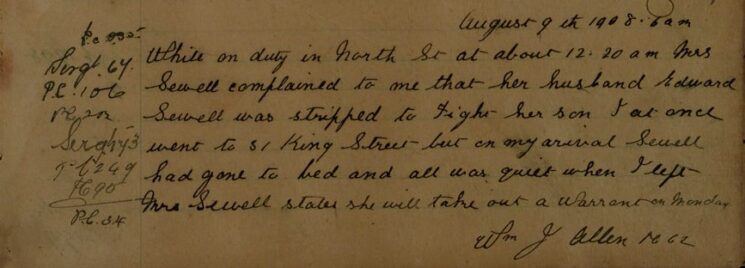 August 9th 1908. 6am
P.C. 335
Sergt. 64.
P.C. 106
P.C. 202
Sergt 43
P.C. 249
P.C. 34
While on duty in North St at about 12.20 am Mrs
Sewell complained to me that her husband Edward
Sewell was stripped to Fight her son I at once
went to 51 King Street but on my arrival Sewell
had gone to bed and all was quiet when I left
Mrs Sewell states she will take out a Warrant on Monday
Wm J Allen